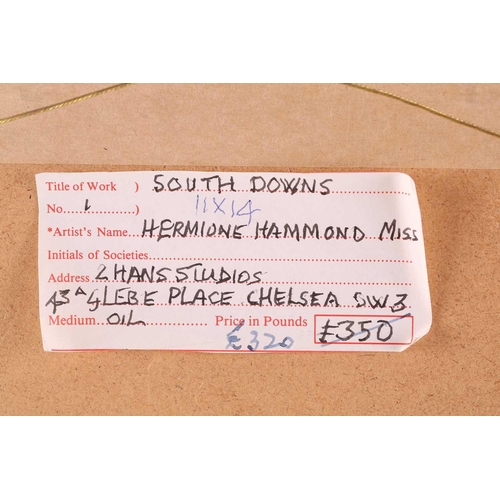 Title of Work ) SOUTH DOWNS
No. 1 ) 11X14
*Artist's Name HERMIONE HAMMOND MISS
Initials of Societies
Address 2 HANS STUDIOS
43A GLEBE PLACE CHELSEA SW3
Medium OIL Price in Pounds £350
£320